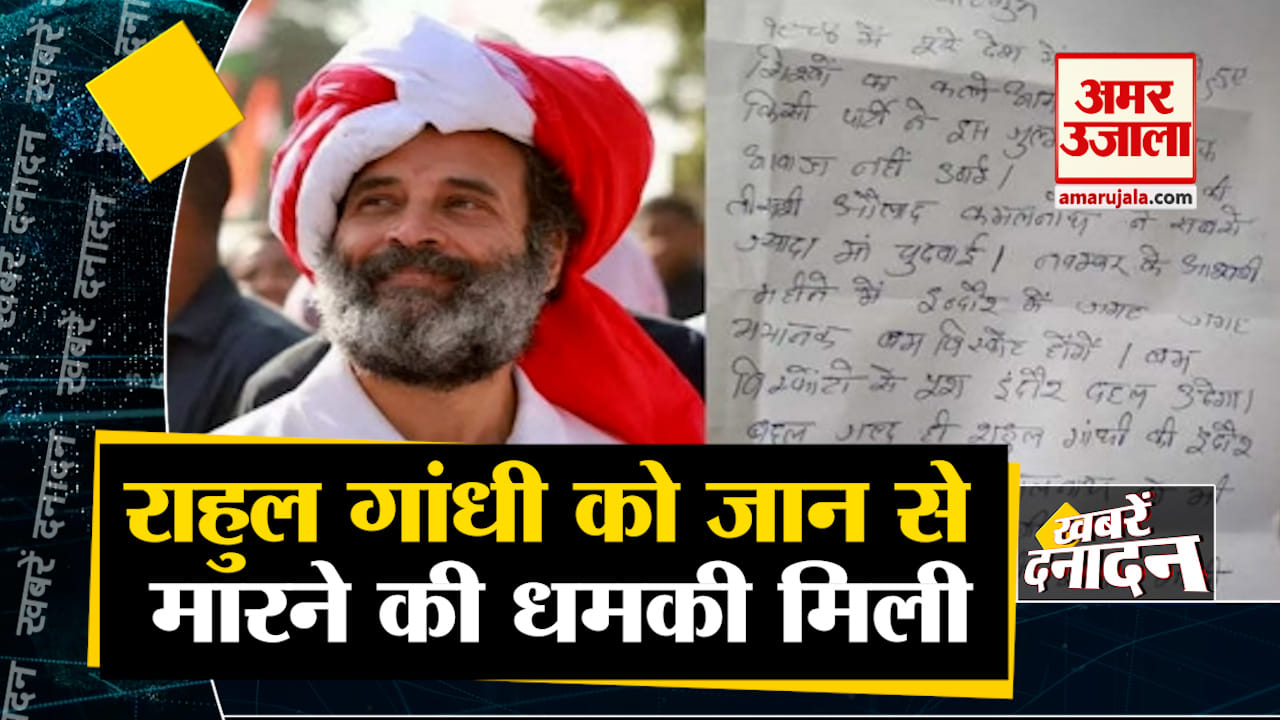 खबरें दनादन
खबरें दनादन
खबरें दनादन
अमर
उजाला
amarujala.com
१९८४ में पूरे देश में
सिखों का कत्ले आम
किसी पार्टी ने इस जुल्म
आवाज नहीं उठाई।
कमलनाथ ने सबसे
ज्यादा मां चुदवाई। नवम्बर के आखरी
महीने में इन्दौर में जगह जगह
भयानक बम विस्फोट होंगे। बम
विस्फोटो से पूरा इंदौर दहल उठेगा।
बहुत जल्द ही राहुल गांधी की इंदौर
राहुल गांधी को जान से
मारने की धमकी मिली
खबरें
दनादन